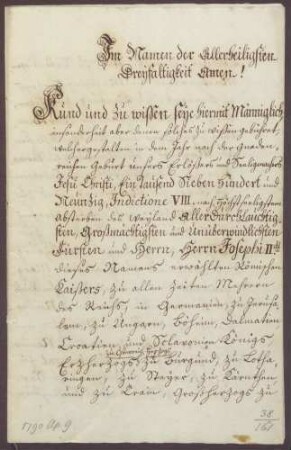 Im Namen der Allerheiligsten
Dreyfaltigkeit Amen!
Kund und zu wissen seye hiermit Männiglich
insonderheit aber denen solches zu wissen gebühret,
welchergestalten in dem Jahr nach der Gnaden,
reichen Geburt unsers Erlösers und Seeligmachers
Jesu Christi, Ein Tausend Sieben Hundert und
Neunzig, Indictione VIII. nach höchstseeligstem
Absterben des weyland Allerdurchlauchtig
sten, Großmächtigsten und Unüberwindlichsten
Fürsten und Herrn, Herrn Josephi II.
dieses Namens erwählten Römischen
Kaisers, zu allen Zeiten Mehrern
des Reichs, in Germanien, zu Jerusa,
lem, zu Ungarn, Böheim, Dalmatien
Croatien, und Sclavonien Königs
Erzherzogs zu Burgund, zu Lotha,
ringen, zu Steyer, zu Kärnthen
und zu Crain, Großherzogs zu
1790 Ap. 9
38
161